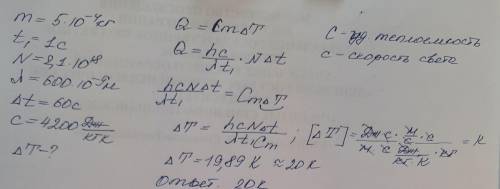 m = 5·10⁻⁴кг
t₁ = 1с
N = 2,1·10¹⁸
λ = 600·10⁻⁹м
Δt = 60с
c = 4200 Дж/кг К
ΔT - ?
Q = CmΔT
Q = hc/λt₁ · NΔt
hcNΔt/λt₁ = CmΔT
ΔT = hcNΔt/λt₁Cm ; [ΔT] = Дж·с · м/с · с / м · с · Дж/кг К · кг = К
ΔT = 19,89 К ≈ 20К
Ответ: 20К
C - уд. теплоемкость
c - скорость света